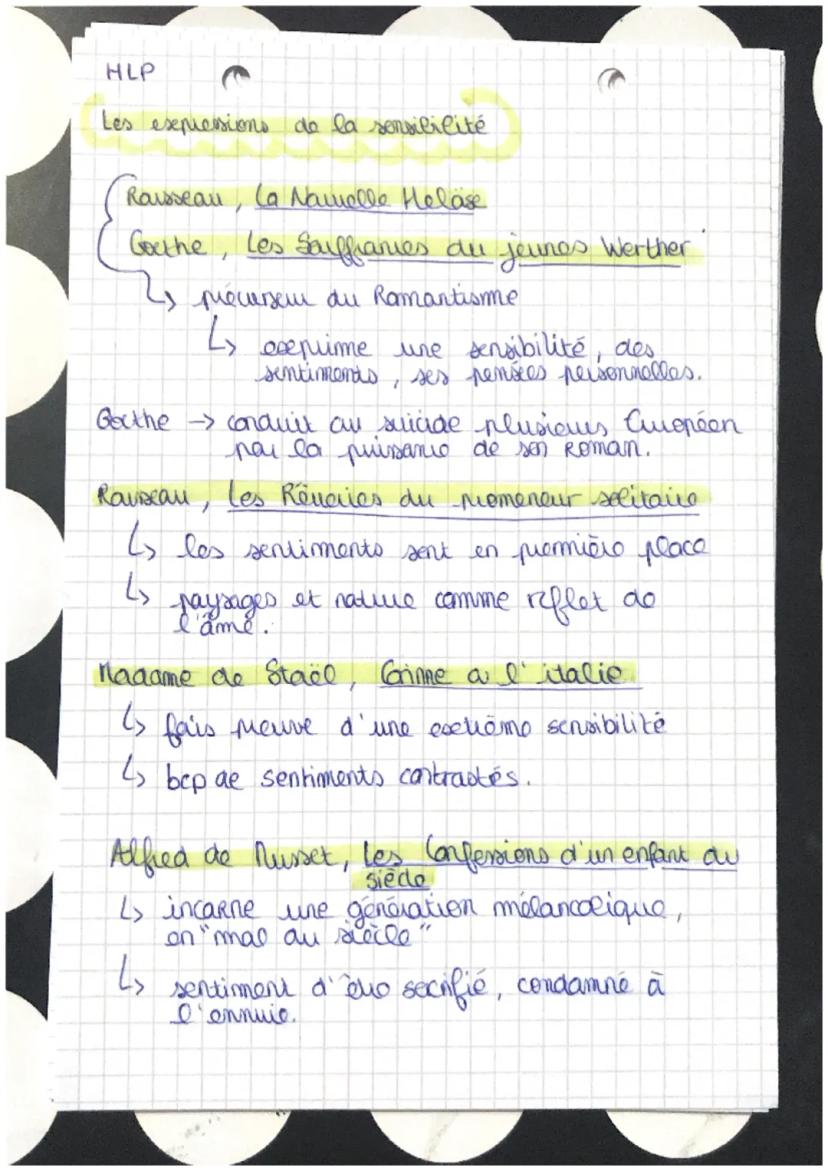 HLP
Les expressions de la sensibilité
Rousseau, La Nouvelle Heloïse
Goethe, Les Souffrances du jeunes Werther
↳ précurseur du Romantisme
↳ exprime une sensibilité, des
sentiments, ses pensées personnelles.
Goethe → conduit au suicide plusieurs Européen
par la puissance de son Roman.
Rousseau, Les Rêveries du promeneur solitaire
↳ les sentiments sont en première place
↳ paysages et nature comme reflet de
l'âme.
Madame de Staël, Corinne a l'italie
↳ fais preuve d'une extrême sensibilité
↳ bcp de sentiments contrastés.
Alfred de Musset, Les Confessions d'un enfant du
siècle
↳ incarne une génération mélancolique,
en "mal du siècle"
↳ sentiment d'être sacrifié, condamné à
l'ennuie.